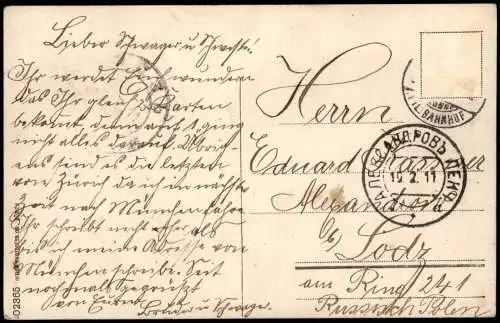 Lieber Schwager u Schwester!
Ihr werdet Euch wundern
das Ihr gleich 2 Karten
bekomt denn auf 1. ging
nicht alles darauf. Übrig-
ens sind es die letzten
von Zürich da ich nächst
Tag nach München fahre
Ihr schreibt nicht eher als
bis ich meine Adresse von
München schreibe. Seit
nochmals gegrüsst
von Eurem
Bruder u Schwager.
Herrn
Eduard
Alexandrow
b/ Lodz
am Ring 241
Russisch Polen
BAHNHOF
АЛЕКСАНДРОВЪ
19.2.11
02365